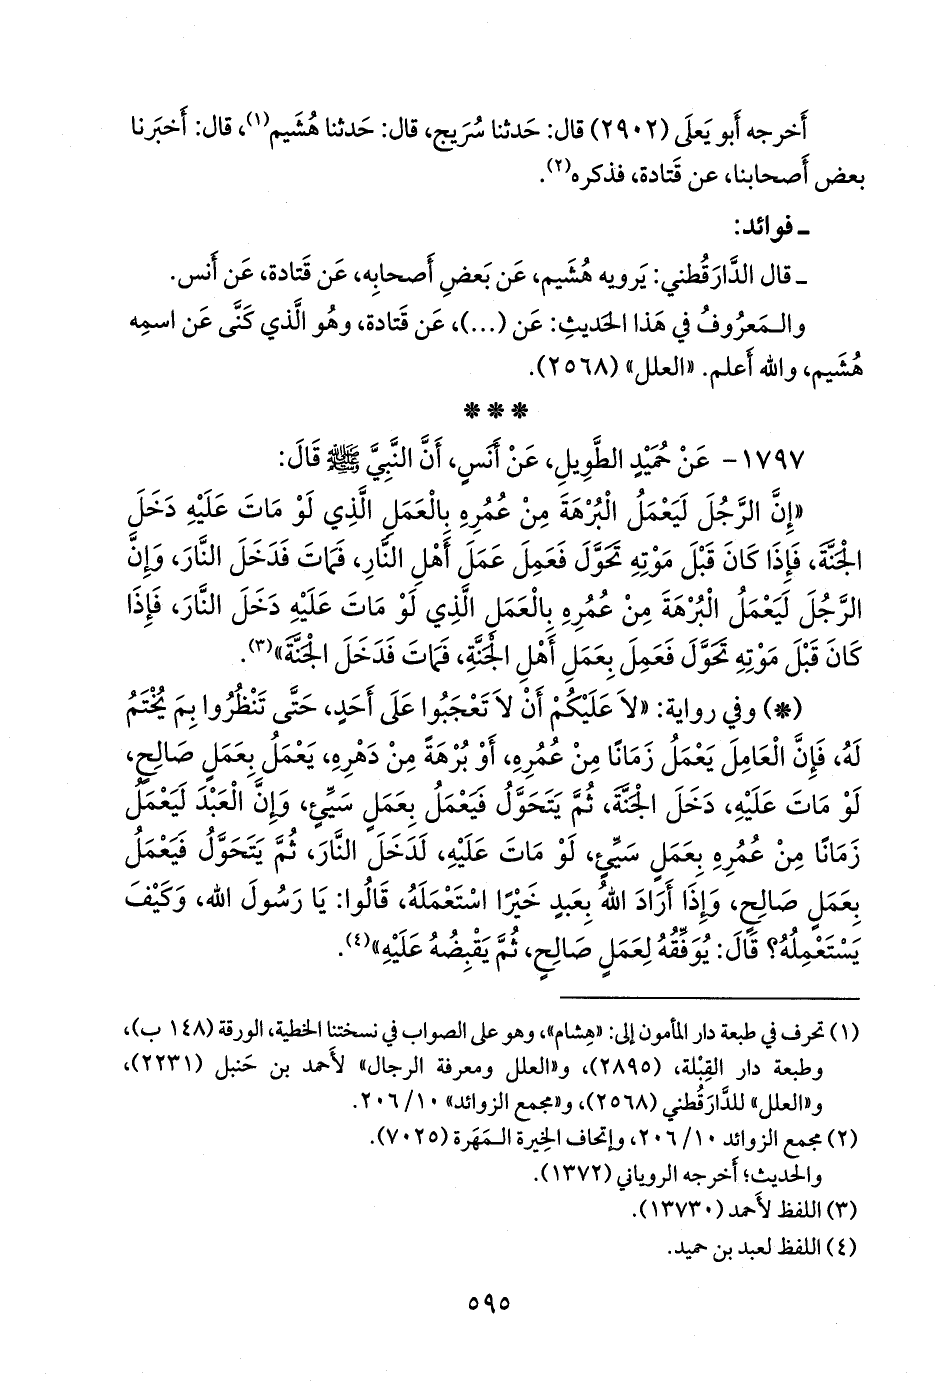 أَخرجه أَبو يَعلَى (٢٩٠٢) قال: حَدثنا سُرَيج، قال: حَدثنا هُشَيم(١)، قال: أَخبَرنا
بعض أَصحابنا، عن قَتادة، فذكره(٢).
ـ فوائد:
ـ قال الدَّارَقُطني: يَرويه هُشَيم، عَن بَعضِ أَصحابِه، عَن قَتادة، عَن أَنس.
والـمَعرُوفُ في هَذا الحَديثِ: عَن (...)، عَن قَتادة، وهُو الَّذي كَنَّى عَن اسمِه
هُشَيم، والله أَعلم. «العلل» (٢٥٦٨).
***
١٧٩٧- عَنْ حُمَيْدٍ الطَّوِيلِ، عَنْ أَنَسٍ، أَنَّ النَّبِيَّ ﷺ قَالَ:
«إِنَّ الرَّجُلَ لَيَعْمَلُ الْبُرْهَةَ مِنْ عُمُرِهِ بِالْعَمَلِ الَّذِي لَوْ مَاتَ عَلَيْهِ دَخَلَ
الْجَنَّةَ، فَإِذَا كَانَ قَبْلَ مَوْتِهِ تَحَوَّلَ فَعَمِلَ عَمَلَ أَهْلِ النَّارِ، فَمَاتَ فَدَخَلَ النَّارَ، وَإِنَّ
الرَّجُلَ لَيَعْمَلُ الْبُرْهَةَ مِنْ عُمُرِهِ بِالْعَمَلِ الَّذِي لَوْ مَاتَ عَلَيْهِ دَخَلَ النَّارَ، فَإِذَا
كَانَ قَبْلَ مَوْتِهِ تَحَوَّلَ فَعَمِلَ بِعَمَلِ أَهْلِ الْجَنَّةِ، فَمَاتَ فَدَخَلَ الْجَنَّةَ»(٣).
(*) وفي رواية: «لاَ عَلَيْكُمْ أَنْ لاَ تَعْجَبُوا عَلَى أَحَدٍ، حَتَّى تَنْظُرُوا بِمَ يُخْتَمُ
لَهُ، فَإِنَّ الْعَامِلَ يَعْمَلُ زَمَانًا مِنْ عُمُرِهِ، أَوْ بُرْهَةً مِنْ دَهْرِهِ، يَعْمَلُ بِعَمَلٍ صَالِحٍ،
لَوْ مَاتَ عَلَيْهِ، دَخَلَ الْجَنَّةَ، ثُمَّ يَتَحَوَّلُ فَيَعْمَلُ بِعَمَلٍ سَيِّئٍ، وَإِنَّ الْعَبْدَ لَيَعْمَلُ
زَمَانًا مِنْ عُمُرِهِ بِعَمَلٍ سَيِّئٍ، لَوْ مَاتَ عَلَيْهِ، لَدَخَلَ النَّارَ، ثُمَّ يَتَحَوَّلُ فَيَعْمَلُ
بِعَمَلٍ صَالِحٍ، وَإِذَا أَرَادَ اللهُ بِعَبدٍ خَيْرًا اسْتَعْمَلَهُ، قَالُوا: يَا رَسُولَ الله، وَكَيْفَ
يَسْتَعْمِلُهُ؟ قَالَ: يُوَفِّقُهُ لِعَمَلٍ صَالِحٍ، ثُمَّ يَقْبِضُهُ عَلَيْهِ»(٤).
(١) تحرف في طبعة دار المأمون إلى: «هِشام»، وهو على الصواب في نسختنا الخطية، الورقة (١٤٨ ب)،
وطبعة دار القِبْلة، (٢٨٩٥)، و«العلل ومعرفة الرجال» لأَحمد بن حَنبل (٢٢٣١)،
و«العلل» للدَّارَقُطني (٢٥٦٨)، و«مجمع الزوائد» ١٠/ ٢٠٦.
(٢) مجمع الزوائد ١٠/ ٢٠٦، وإتحاف الخِيرة الـمَهَرة (٧٠٢٥).
والحديث؛ أَخرجه الروياني (١٣٧٢).
(٣) اللفظ لأَحمد (١٣٧٣٠).
(٤) اللفظ لعبد بن حميد.
٥٩٥